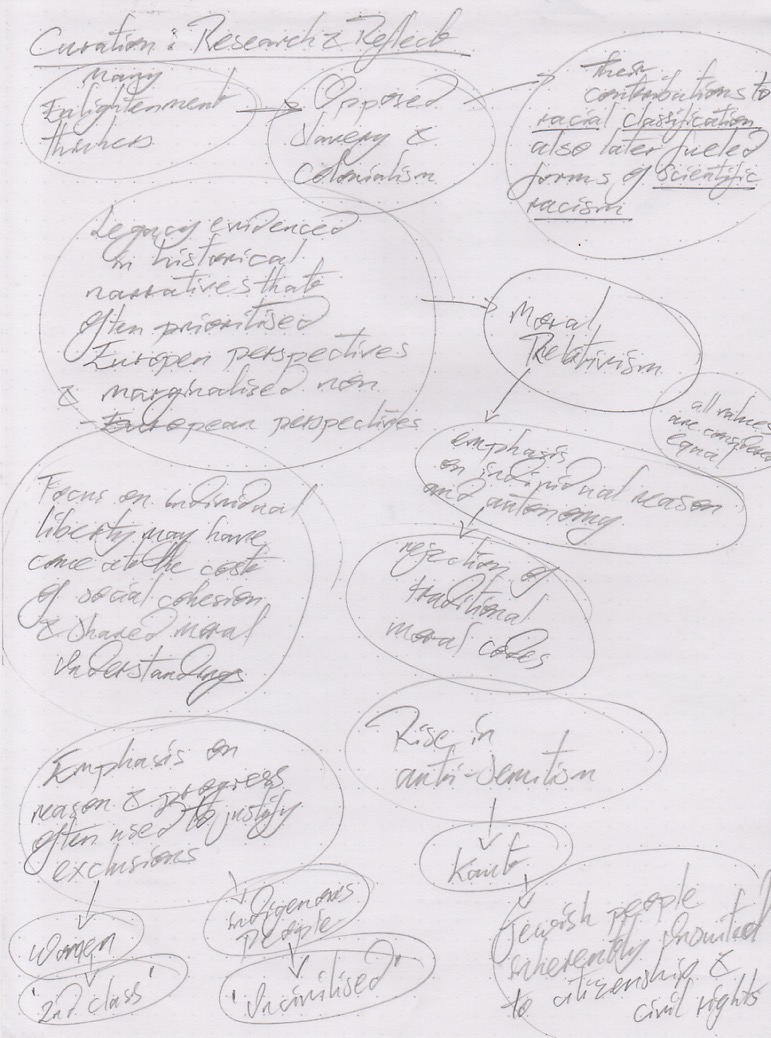 Curation: Research & Reflect
Many
Enlightenment
thinkers
Opposed
slavery &
colonialism
their
contributions to
racial classification
also later fueled
forms of scientific
racism
Legacy evidenced
in historical
narratives that
often prioritised
European perspectives
& marginalised non
-European perspectives
Moral
Relativism
all values
are considered
equal
emphasis
on individual reason
and autonomy
rejection of
traditional
moral codes
Focus on individual
liberty may have
come at the cost
of social cohesion
& shared moral
understandings
Rise in
anti-semitism
Kant
Jewish people
inherently
to citizenship &
civil rights
Emphasis on
reason & progress
often used to justify
exclusions
women
'2nd class'
indigenous
People
'uncivilised'